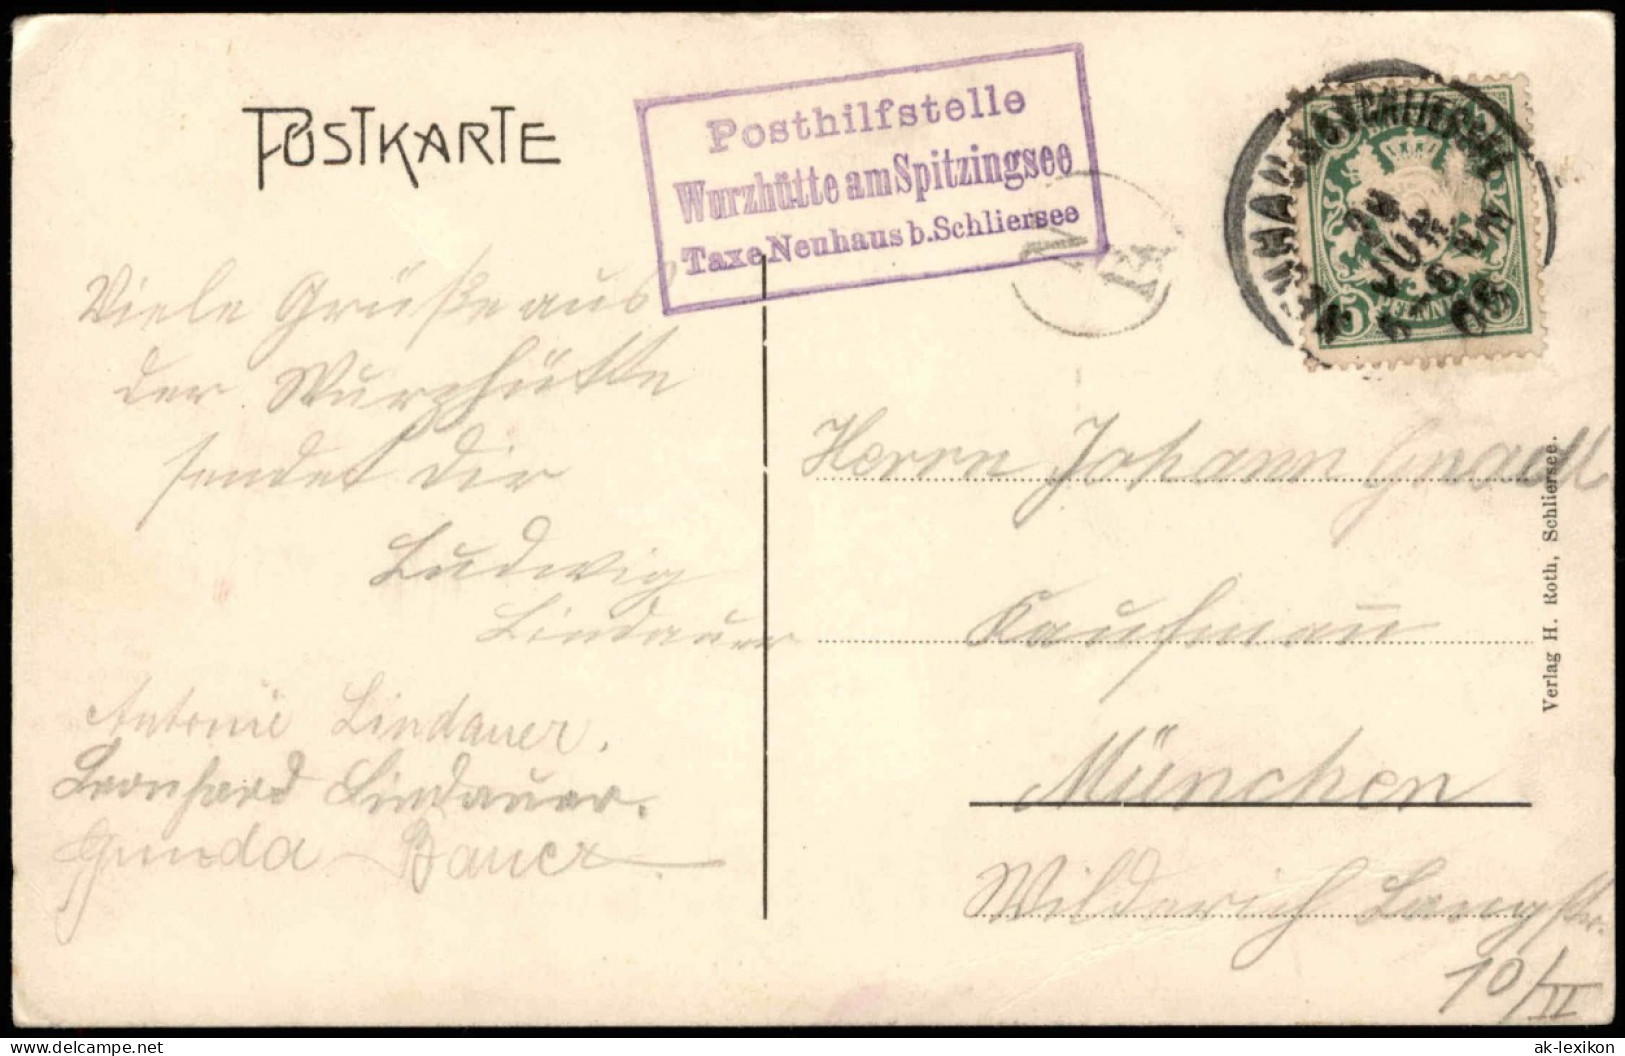 POSTKARTE
Posthilfstelle
Wurzhütte am Spitzingsee
Taxe Neuhaus b. Schliersee
NEUHAUS B. SCHLIERSEE
JUN
06
5
PFENNIG
Viele Grüße aus
der Wurzhütte
sendet dir
Ludwig
Lindauer
Antonie Lindauer.
Leonhard Lindauer.
Gunda Bauer
Herrn Johann Gnadl
Kaufmañ
München
Wilderich Langstr.
10/II
Verlag H. Roth, Schliersee.
delcampe.net
ak-lexikon